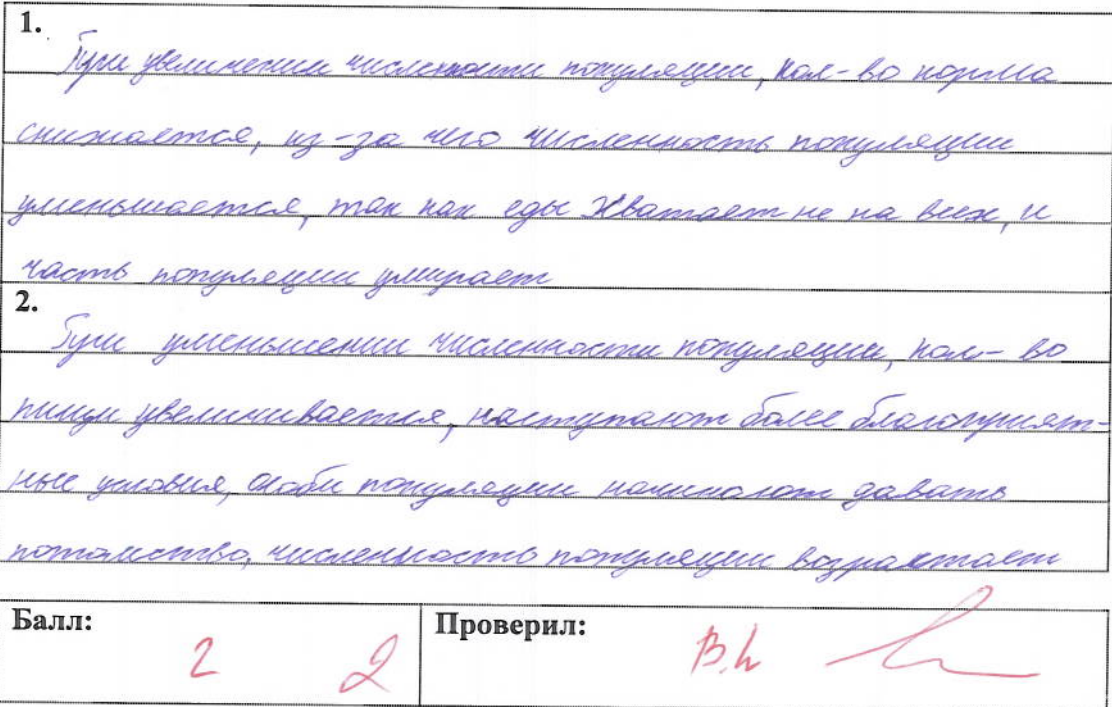 1.
При увеличении численности популяции, кол-во корма
снижается, из-за чего численность популяции
уменьшается, так как еды хватает не на всех, и
часть популяции умирает
2.
При уменьшении численности популяции, кол-во
пищи увеличивается, наступают более благоприят-
ные условия, особи популяции начинают давать
потомство, численность популяции возрастает
Балл: 2 2 Проверил: В.И